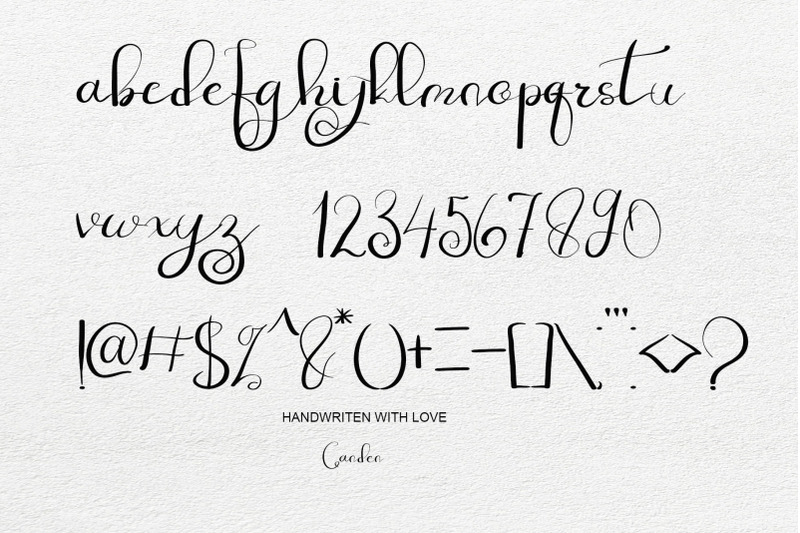 abcdefghijklmnopqrstu
vwxyz 1234567890
!@#$%^&*()+=-[]\,:"';.<>?
HANDWRITEN WITH LOVE
Canden